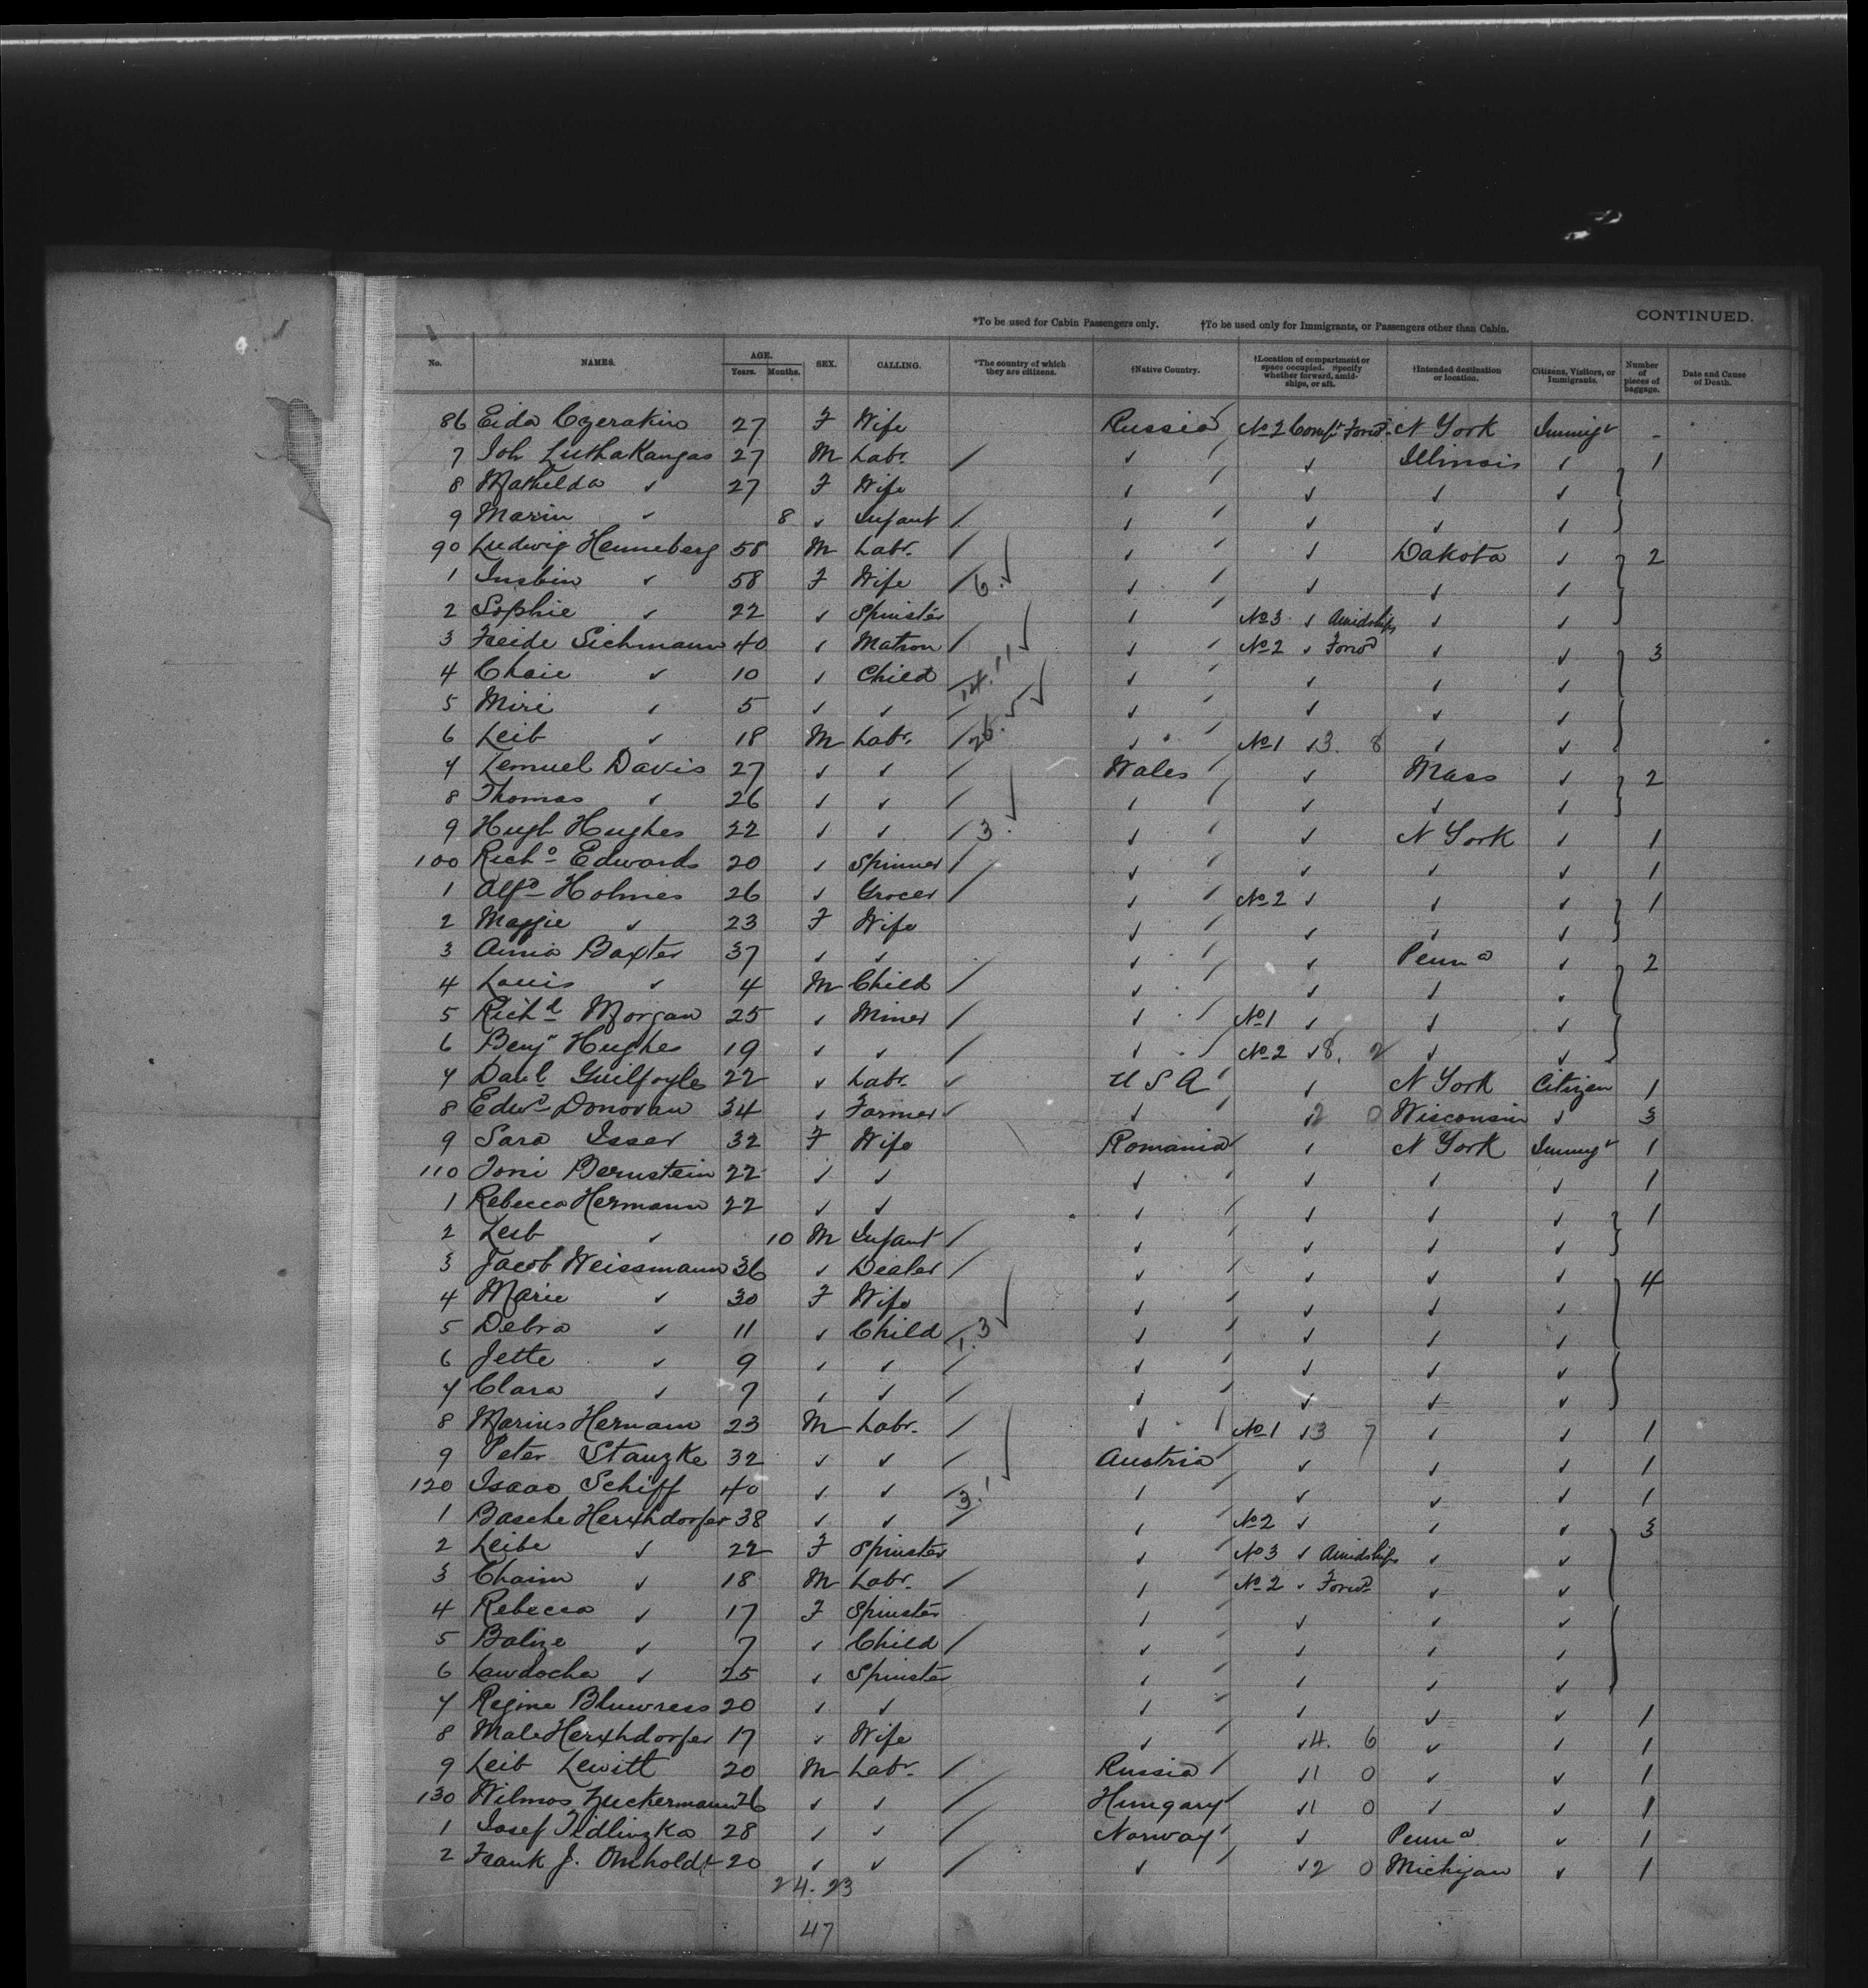 CONTINUED.
*To be used for Cabin Passengers only. †To be used only for Immigrants, or Passengers other than Cabin.
No. NAMES. AGE. Years. Months. SEX. CALLING. *The country of which they are citizens. †Native Country. †Location of compartment or space occupied. Specify whether forward, amidships, or aft. †Intended destination or location. Citizens, Visitors, or Immigrants. Number of pieces of baggage. Date and Cause of Death.
86 Eida Czerakin 27 F Wife Russia No 2 Compt Forwd N York Immigt -
7 Joh LuthaKangas 27 M Labr. / ✓ ✓ Illinois ✓ 1
8 Mathilda ✓ 27 F Wife ✓ ✓ ✓ ✓
9 Marin ✓ 8 ✓ Infant / ✓ ✓ ✓ ✓
90 Ludwig Henneberg 58 M Labr. / ✓ ✓ Dakota ✓ 2
1 ✓ 58 F Wife / 6. ✓ ✓ ✓ ✓
2 Sophie ✓ 22 ✓ Spinster ✓ No 3 ✓ Amidships ✓ ✓
3 Freide Sichmann 40 ✓ Matron / ✓ No 2 ✓ Forwd ✓ ✓ 3
4 Chaie ✓ 10 ✓ Child / 14. 11 ✓ ✓ ✓ ✓
5 Miri ✓ 5 ✓ ✓ / ✓ ✓ ✓ ✓
6 Leib ✓ 18 M Labr. / 26. 5 ✓ No 1 ✓ 3. 8 ✓ ✓
7 Lemuel Davis 27 ✓ ✓ / Wales ✓ Mass ✓ 2
8 Thomas ✓ 26 ✓ ✓ / ✓ ✓ ✓ ✓
9 Hugh Hughes 22 ✓ ✓ / 3. ✓ ✓ N York ✓ 1
100 Richd Edwards 20 ✓ Spinner / ✓ ✓ ✓ ✓ 1
1 Alfd Holmes 26 ✓ Grocer / ✓ No 2 ✓ ✓ ✓ 1
2 Maggie ✓ 23 F Wife ✓ ✓ ✓ ✓
3 Annie Baxter 37 ✓ ✓ ✓ ✓ Penna ✓ 2
4 Louis ✓ 4 M Child / ✓ ✓ ✓ ✓
5 Richd Morgan 25 ✓ Miner / ✓ No 1 ✓ ✓ ✓
6 Benj Hughes 19 ✓ ✓ / ✓ No 2 ✓ 8. 2 ✓ ✓
7 Danl Guilfoyle 22 ✓ Labr. ✓ U S A ✓ N York Citizen 1
8 Edwd Donovan 34 ✓ Farmer ✓ ✓ ✓ 2 0 Wisconsin ✓ 3
9 Sara Isser 32 F Wife Romania ✓ N York Immigt 1
110 Toni Bernstein 22 ✓ ✓ ✓ ✓ ✓ ✓ 1
1 Rebecca Hermann 22 ✓ ✓ ✓ ✓ ✓ ✓ 1
2 Leib ✓ 10 M Infant / ✓ ✓ ✓ ✓
3 Jacob Weissmann 36 ✓ Dealer / ✓ ✓ ✓ ✓ 4
4 Marie ✓ 30 F Wife ✓ ✓ ✓ ✓
5 Debra ✓ 11 ✓ Child / 1. 3 ✓ ✓ ✓ ✓
6 Jette ✓ 9 ✓ ✓ / ✓ ✓ ✓ ✓
7 Clara ✓ 7 ✓ ✓ / ✓ ✓ ✓ ✓
8 Marius Hermann 23 M Labr. / ✓ No 1 ✓ 3 7 ✓ ✓ 1
9 Peter Stanzke 32 ✓ ✓ / Austria ✓ ✓ ✓ 1
120 Isaac Schiff 40 ✓ ✓ / 3. 1 ✓ ✓ ✓ ✓ 1
1 Basche Herxhdorfer 38 ✓ ✓ / ✓ No 2 ✓ ✓ ✓ 3
2 Leibe ✓ 22 F Spinster ✓ No 3 ✓ Amidships ✓ ✓
3 Chaim ✓ 18 M Labr. / ✓ No 2 ✓ Forwd ✓ ✓
4 Rebecca ✓ 17 F Spinster ✓ ✓ ✓ ✓
5 Balize ✓ 7 ✓ Child / ✓ ✓ ✓ ✓
6 Lawdocha ✓ 25 ✓ Spinster ✓ ✓ ✓ ✓
7 Regine Bluwress 20 ✓ ✓ ✓ ✓ ✓ ✓ 1
8 Male Herxhdorfer 17 ✓ Wife ✓ ✓ 4. 6 ✓ ✓ 1
9 Leib Lewitt 20 M Labr. / Russia ✓ 1 0 ✓ ✓ 1
130 Wilmos Zuckermann 26 ✓ ✓ / Hungary ✓ 1 0 ✓ ✓ 1
1 Josef Tidlinzka 28 ✓ ✓ / Norway ✓ Penna ✓ 1
2 Frank J. Omholdt 20 ✓ ✓ / ✓ ✓ 2 0 Michigan ✓ 1
24. 23
47